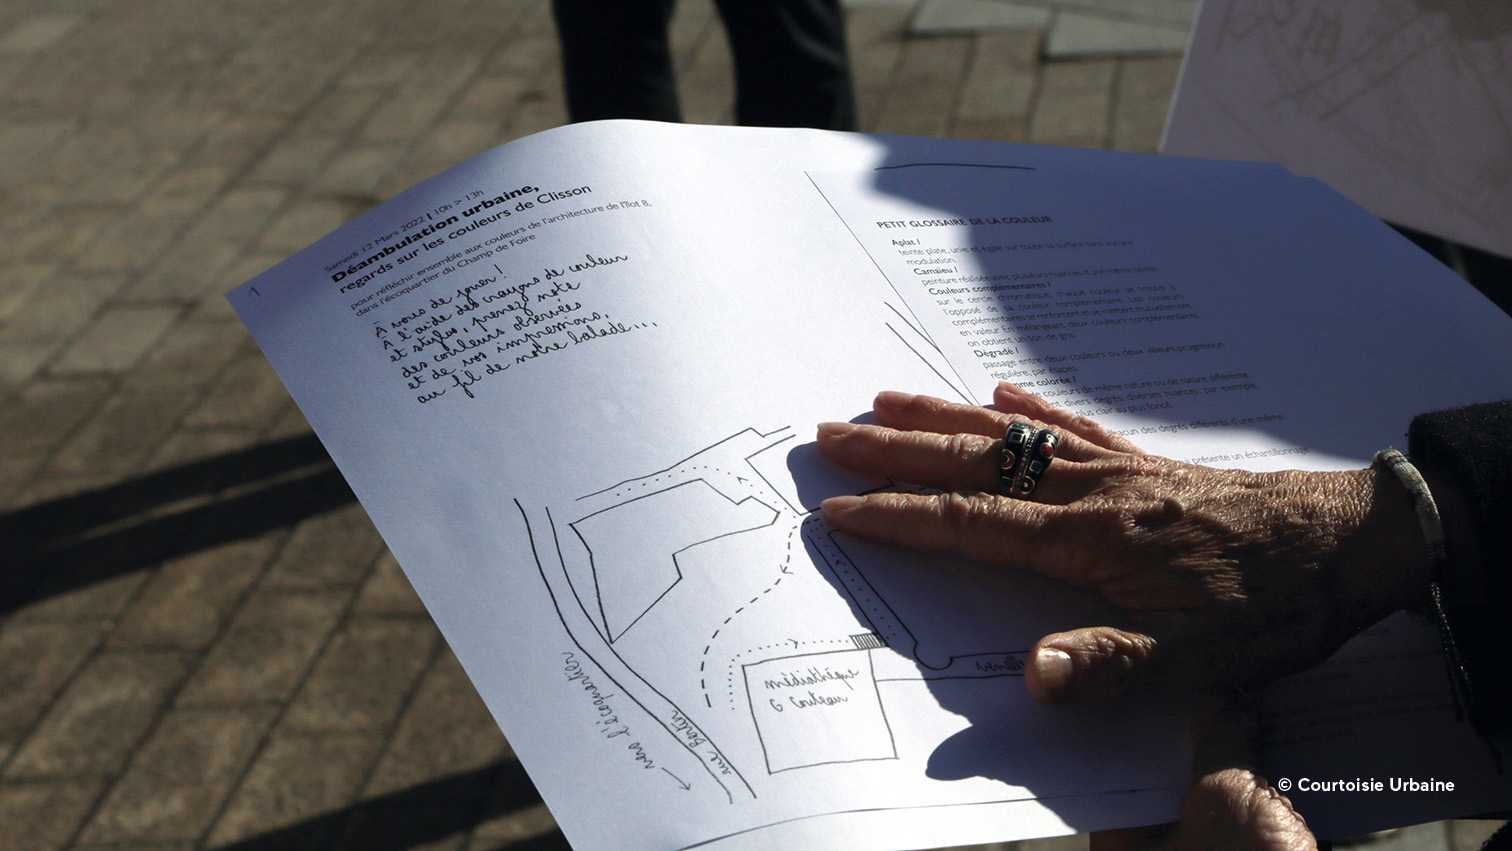 Samedi 12 Mars 2022 | 10h > 13h
Déambulation urbaine,
regards sur les couleurs de Clisson
pour réfléchir ensemble aux couleurs de l'architecture de l'îlot B,
dans l'écoquartier du Champ de Foire
À vous de jouer !
À l'aide des crayons de couleur
et stylos, prenez note
des couleurs observées
et de vos impressions,
au fil de notre balade...
PETIT GLOSSAIRE DE LA COULEUR
Aplat /
teinte plate, unie et égale sur toute sa surface sans aucune
modulation.
Camaïeu /
peinture réalisée avec plusieurs nuances d'une même teinte
Couleurs complémentaires /
sur le cercle chromatique, chaque couleur se trouve à
l'opposé de sa couleur complémentaire. Les couleurs
complémentaires se renforcent et se mettent mutuellement
en valeur. En mélangeant deux couleurs complémentaires,
on obtient un ton de gris.
Dégradé /
passage entre deux couleurs ou deux valeurs, progression
régulière, par étapes
colorée /
de couleurs de même nature ou de nature différente,
divers degrés, diverses nuances : par exemple,
plus clair au plus foncé.
des degrés différents d'une même
présente un échantillonnage
médiathèque
G Couteau
rue Bertin
vers l'écoquartier
© Courtoisie Urbaine